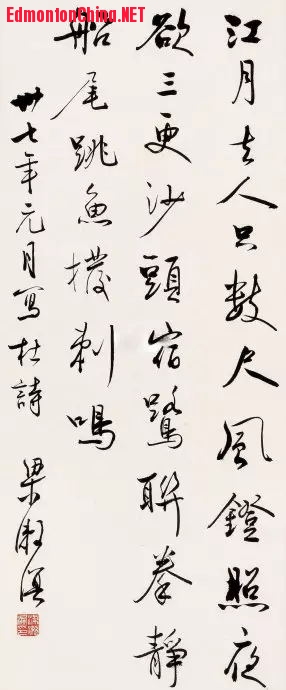 EdmontonChina.NET
江月去人只數尺風鐙照夜
欲三更沙頭宿鷺聯拳靜
船尾跳魚撥剌鳴
卅七年元月寫杜詩
梁漱溟